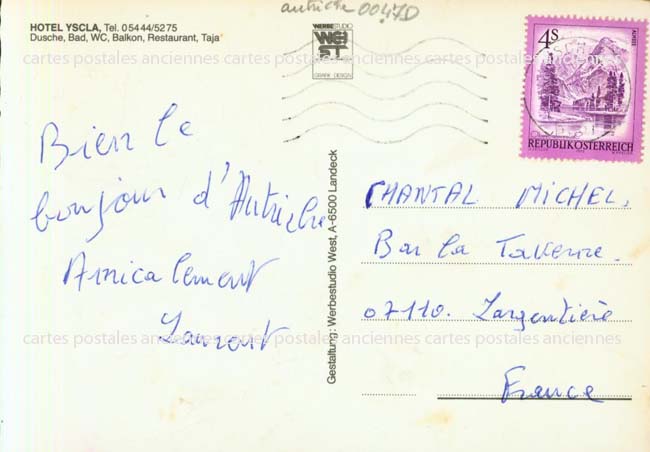 autriche 0047D
HOTEL YSCLA, Tel. 05444/5275
Dusche, Bad, WC, Balkon, Restaurant, Taja
WERBESTUDIO
WEST
GRAFIK-DESIGN
4S
REPUBLIK ÖSTERREICH
cartes postales anciennes cartes postales anciennes cartes postales anciennes
Bien le
bonjour d'Autriche
Amicalement
Laurent
Gestaltung: Werbestudio West, A-6500 Landeck
CHANTAL MICHEL.
Bar la Taverne.
07110. Largentière
France
cartes postales anciennes cartes postales anciennes cartes postales anciennes